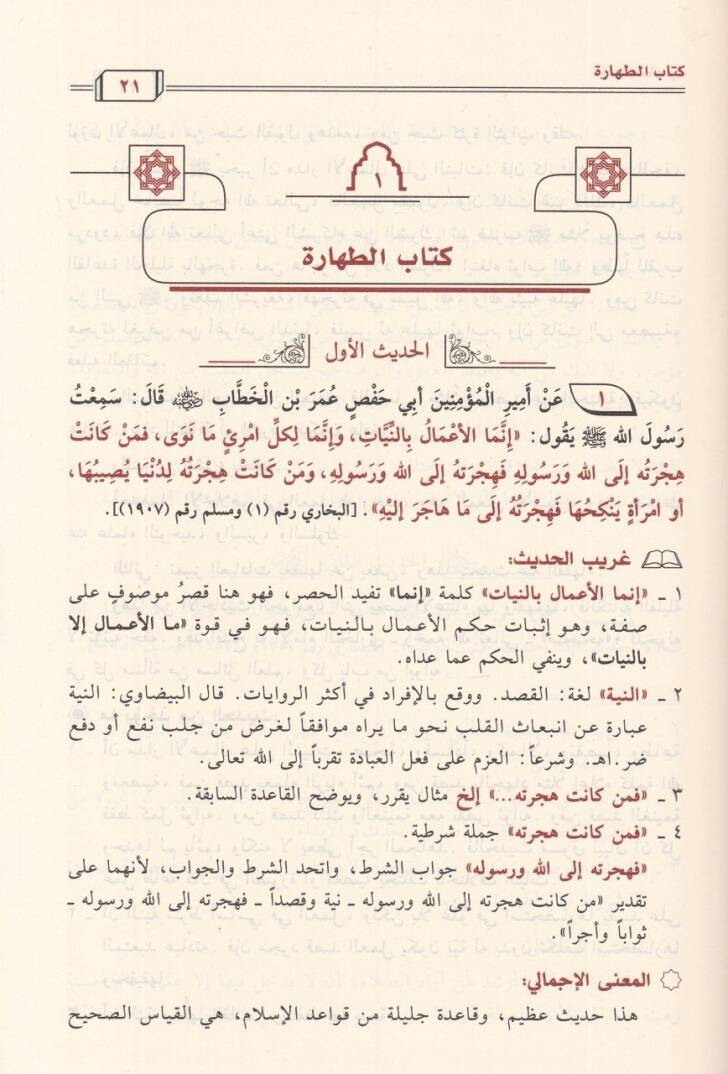 كتاب الطهارة
٢١
١
كتاب الطهارة
الحديث الأول
١ عَنْ أَمِيرِ الْمُؤْمِنِينَ أبي حَفْصٍ عُمَرَ بْنِ الْخَطَّابِ رضي الله عنه قَالَ: سَمِعْتُ
رَسُولَ الله ﷺ يَقُول: «إِنَّمَا الأعْمَالُ بِالنِّيَّاتِ، وَإِنَّمَا لِكلِّ امْرِئٍ مَا نَوَى، فَمَنْ كَانَتْ
هِجْرَتُه إلَى الله وَرَسُولِهِ فَهِجْرَتهُ إلَى الله وَرَسُولِهِ، وَمَنْ كَانَتْ هِجْرَتُهُ لِدُنْيَا يُصِيبُهَا،
أو امْرَأةٍ يَنْكِحُهَا فَهِجْرَتُهُ إلَى مَا هَاجَرَ إليْهِ». [البخاري رقم (١) ومسلم رقم (١٩٠٧)].
غريب الحديث:
١ ـ «إنما الأعمال بالنيات» كلمة «إنما» تفيد الحصر، فهو هنا قصرُ موصوفٍ على
صفة، وهو إثبات حكم الأعمال بالنيات، فهو في قوة «ما الأعمال إلا
بالنيات»، وينفي الحكم عما عداه.
٢ ـ «النية» لغة: القصد. ووقع بالإفراد في أكثر الروايات. قال البيضاوي: النية
عبارة عن انبعاث القلب نحو ما يراه موافقاً لغرض من جلب نفع أو دفع
ضر.اهـ. وشرعاً: العزم على فعل العبادة تقرباً إلى الله تعالى.
٣ ـ «فمن كانت هجرته...» إلخ مثال يقرر، ويوضح القاعدة السابقة.
٤ ـ «فمن كانت هجرته» جملة شرطية.
«فهجرته إلى الله ورسوله» جواب الشرط، واتحد الشرط والجواب، لأنهما على
تقدير «من كانت هجرته إلى الله ورسوله ـ نية وقصداً ـ فهجرته إلى الله ورسوله ـ
ثواباً وأجراً».
المعنى الإجمالي:
هذا حديث عظيم، وقاعدة جليلة من قواعد الإسلام، هي القياس الصحيح